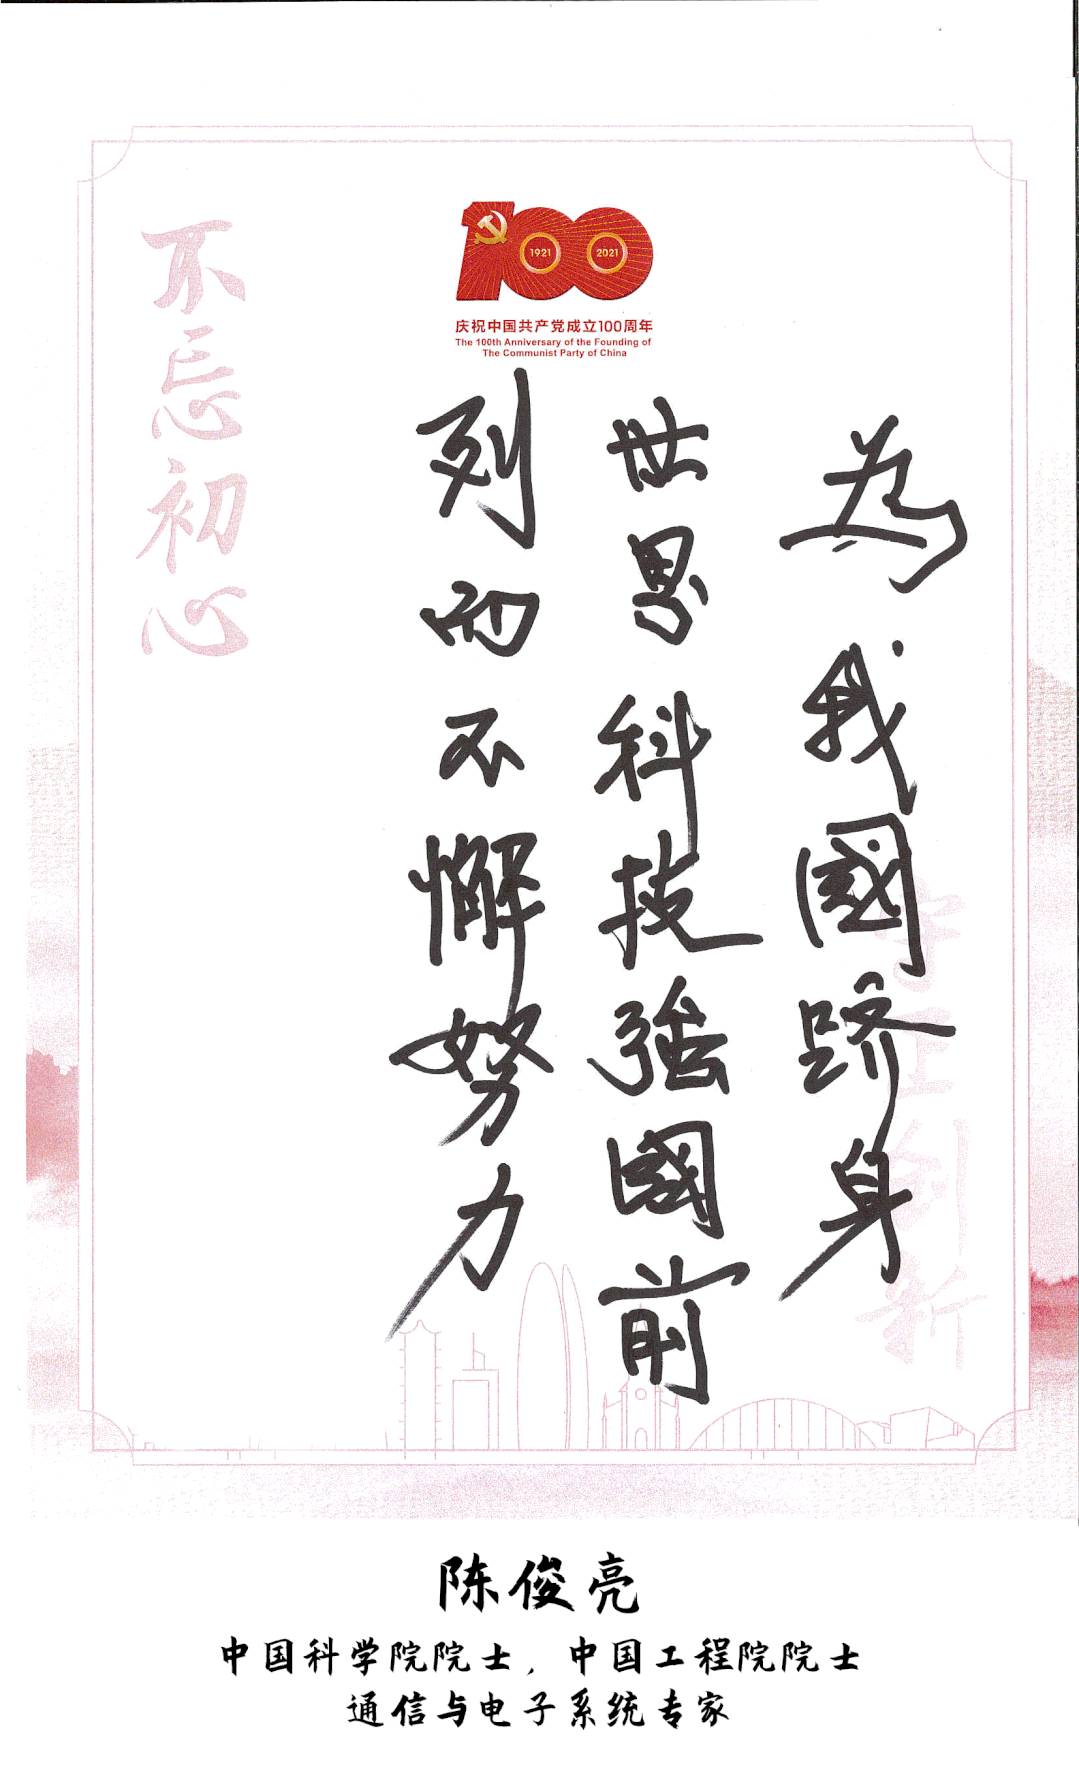 1921 2021
庆祝中国共产党成立100周年
The 100th Anniversary of the Founding of
The Communist Party of China
為我國跻身
世界科技強國前
列而不懈努力
不忘初心
守正创新
陈俊亮
中国科学院院士，中国工程院院士
通信与电子系统专家